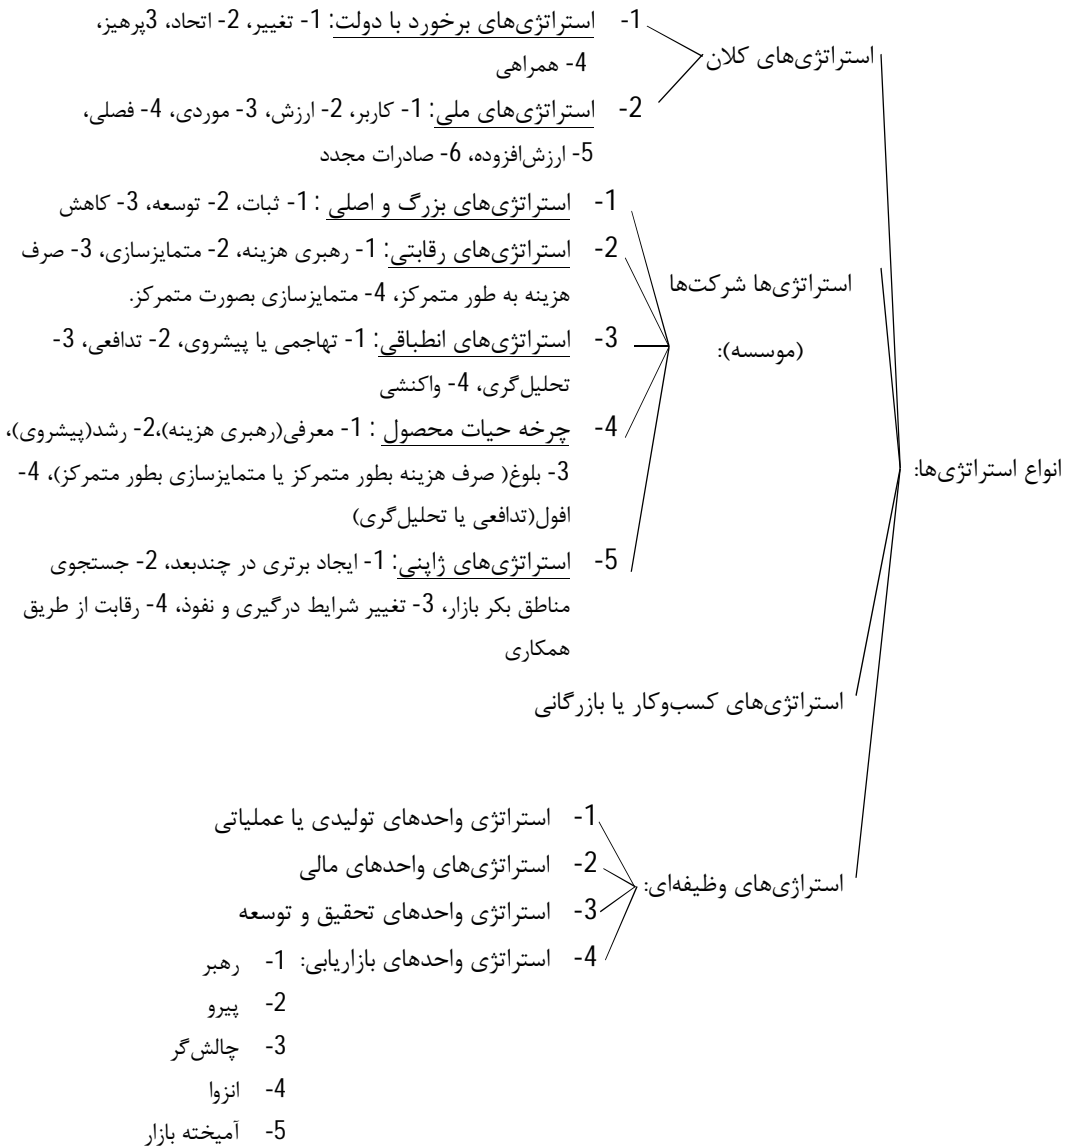 انواع استراتژی‌ها:
استراتژی‌های کلان
1- استراتژی‌های برخورد با دولت: 1- تغییر، 2- اتحاد، 3پرهیز،
4- همراهی
2- استراتژی‌های ملی: 1- کاربر، 2- ارزش، 3- موردی، 4- فصلی،
5- ارزش‌افزوده، 6- صادرات مجدد
استراتژی‌ها شرکت‌ها
(موسسه):
1- استراتژی‌های بزرگ و اصلی : 1- ثبات، 2- توسعه، 3- کاهش
2- استراتژی‌های رقابتی: 1- رهبری هزینه، 2- متمایزسازی، 3- صرف
هزینه به طور متمرکز، 4- متمایزسازی بصورت متمرکز.
3- استراتژی‌های انطباقی: 1- تهاجمی یا پیشروی، 2- تدافعی، 3-
تحلیل‌گری، 4- واکنشی
4- چرخه حیات محصول : 1- معرفی(رهبری هزینه)،2- رشد(پیشروی)،
3- بلوغ( صرف هزینه بطور متمرکز یا متمایزسازی بطور متمرکز)، 4-
افول(تدافعی یا تحلیل‌گری)
5- استراتژی‌های ژاپنی: 1- ایجاد برتری در چندبعد، 2- جستجوی
مناطق بکر بازار، 3- تغییر شرایط درگیری و نفوذ، 4- رقابت از طریق
همکاری
استراتژی‌های کسب‌وکار یا بازرگانی
استراژی‌های وظیفه‌ای:
1- استراتژی واحدهای تولیدی یا عملیاتی
2- استراتژی‌های واحدهای مالی
3- استراتژی واحدهای تحقیق و توسعه
4- استراتژی واحدهای بازاریابی: 1- رهبر
2- پیرو
3- چالش‌گر
4- انزوا
5- آمیخته بازار